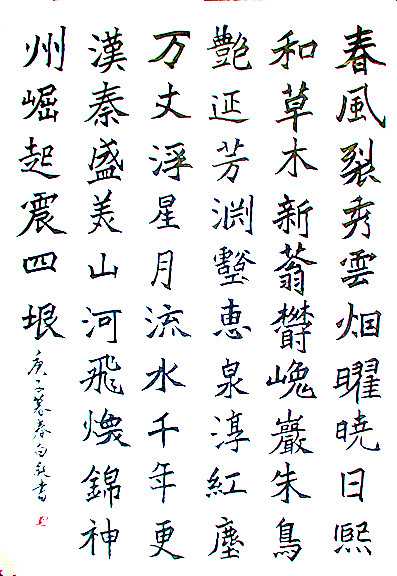 春風裂秀雲烟曜暁日熙
和草木新蓊欝嵬巖朱鳥
艷延芳渊壑恵泉淳紅塵
万丈浮星月流水千年更
漢秦盛美山河飛煥錦神
州崛起震四垠
庚子暮春書